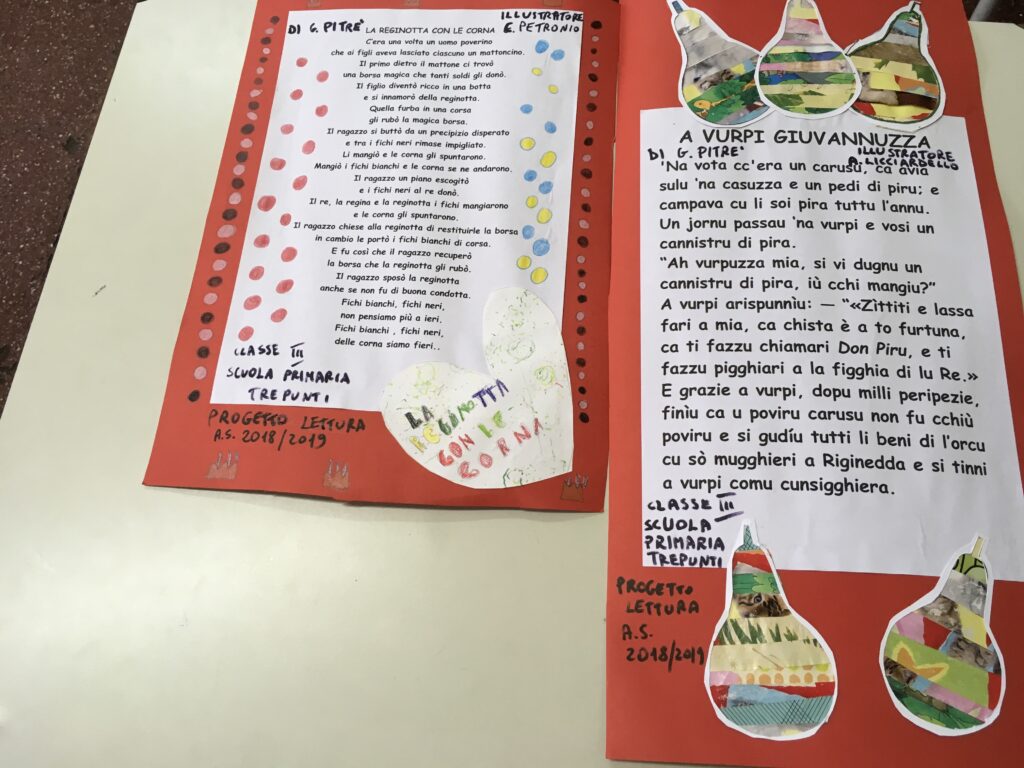 DI G. PITRÈ
LA REGINOTTA CON LE CORNA
ILLUSTRATORE
E. PETRONIO
C'era una volta un uomo poverino
che ai figli aveva lasciato ciascuno un mattoncino.
Il primo dietro il mattone ci trovò
una borsa magica che tanti soldi gli donò.
Il figlio diventò ricco in una botta
e si innamorò della reginotta.
Quella furba in una corsa
gli rubò la magica borsa.
Il ragazzo si buttò da un precipizio disperato
e tra i fichi neri rimase impigliato.
Li mangiò e le corna gli spuntarono.
Mangiò i fichi bianchi e le corna se ne andarono.
Il ragazzo un piano escogitò
e i fichi neri al re donò.
Il re, la regina e la reginotta i fichi mangiarono
e le corna gli spuntarono.
Il ragazzo chiese alla reginotta di restituirle la borsa
in cambio le portò i fichi bianchi di corsa.
E fu così che il ragazzo recuperò
la borsa che la reginotta gli rubò.
Il ragazzo sposò la reginotta
anche se non fu di buona condotta.
Fichi bianchi, fichi neri,
non pensiamo più a ieri.
Fichi bianchi , fichi neri,
delle corna siamo fieri..
CLASSE III
SCUOLA PRIMARIA
TREPUNTI
PROGETTO LETTURA
A.S. 2018/2019
LA
REGINOTTA
CON LE
CORNA
A VURPI GIUVANNUZZA
DI G. PITRÈ
ILLUSTRATORE
A. LICCIARDELLO
'Na vota cc'era un carusu, ca avia
sulu 'na casuzza e un pedi di piru; e
campava cu li soi pira tuttu l'annu.
Un jornu passau 'na vurpi e vosi un
cannistru di pira.
"Ah vurpuzza mia, si vi dugnu un
cannistru di pira, iù cchi mangiu?"
A vurpi arispunnìu: — "«Zìttiti e lassa
fari a mia, ca chista è a to furtuna,
ca ti fazzu chiamari Don Piru, e ti
fazzu pigghiari a la figghia di lu Re.»
E grazie a vurpi, dopu milli peripezie,
finìu ca u poviru carusu non fu cchiù
poviru e si gudíu tutti li beni di l'orcu
cu sò mugghieri a Riginedda e si tinni
a vurpi comu cunsigghiera.
CLASSE III
SCUOLA
PRIMARIA
TREPUNTI
PROGETTO
LETTURA
A.S.
2018/2019